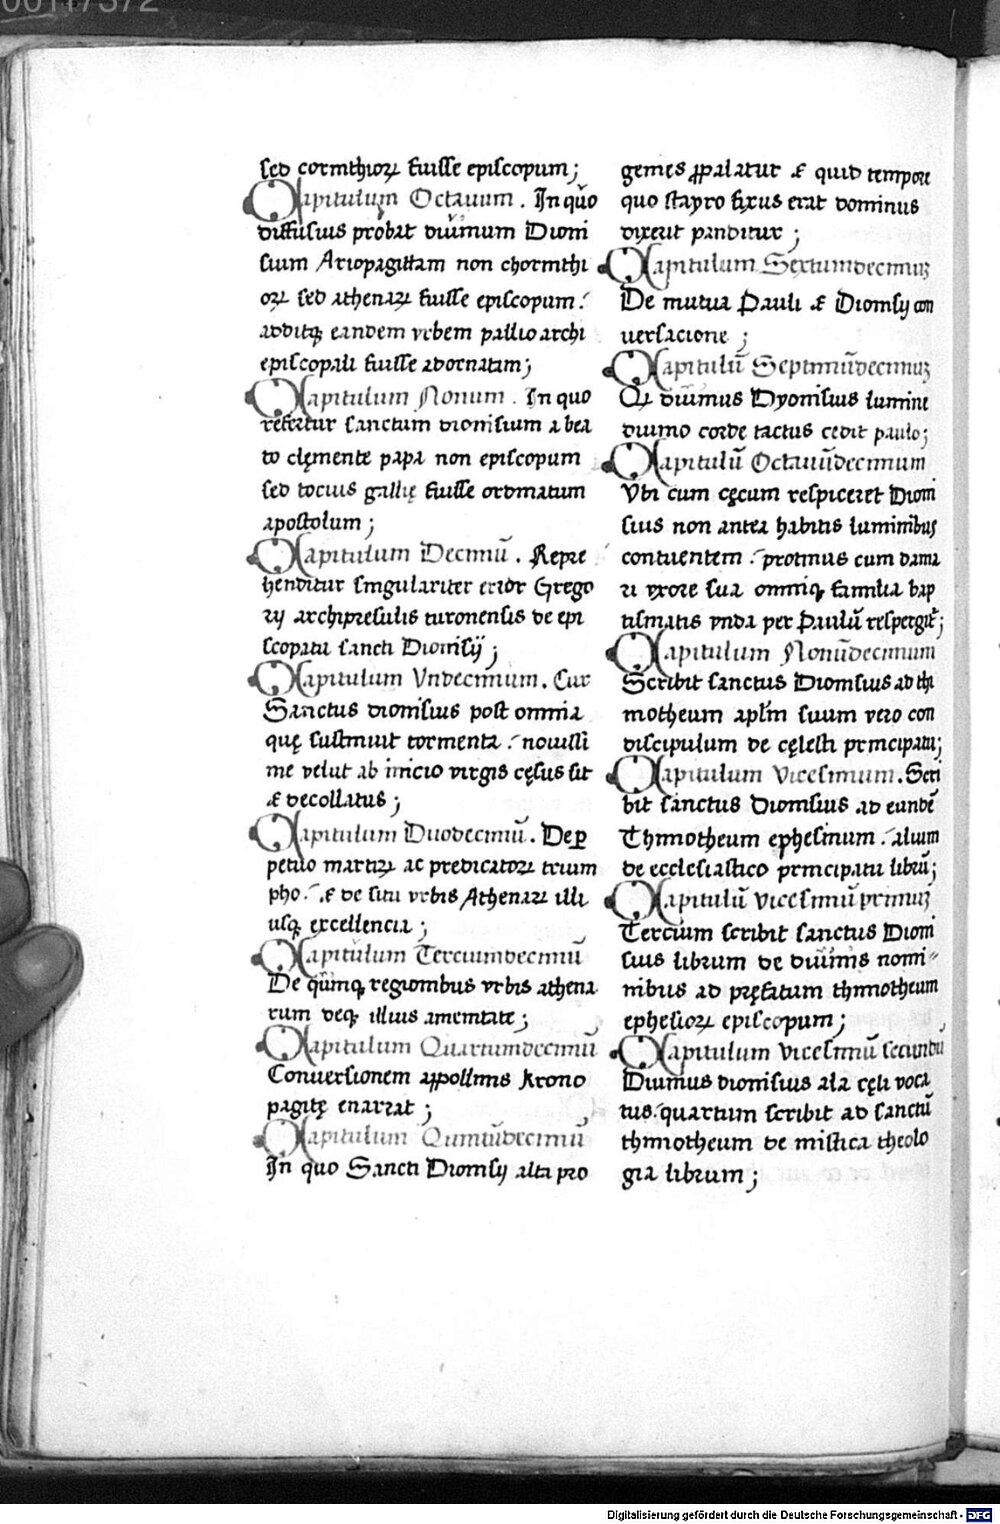 00117372
sed corinthioꝝ fuisse episcopum;
Capitulum Octauum. In quo
diffusius probat diuinum Dioni
sium Ariopagittam non chorinthi
oꝝ sed athenaꝝ fuisse episcopum:
additqꝫ eandem vrbem pallio archi
episcopali fuisse adornatam;
Capitulum Nonum. In quo
refertur sanctum dionisium a bea
to clęmente papa non episcopum
sed tocius gallię fuisse ordinatum
apostolum;
Capitulum Decimū. Repre
henditur singulariter error Grego
rij archipresulis turonensis de epi
scopatu sancti Dionisij;
Capitulum Vndecimum. Cur
Sanctus dionisius post omnia
quę sustinuit tormenta: nouissi
me velut ab inicio virgis cęsus sit
& decollatus;
Capitulum Duodecimū. De ꝑ
petuo martiꝝ ac predicatoꝝ trium
pho: & de situ vrbis Athenaꝝ illi
usqꝫ excellencia;
Capitulum Terciumdecimū
De quinqꝫ regionibus vrbis athena
rum deqꝫ illius amenitate;
Capitulum Quartumdecimū
Conuersionem appollinis Arono
pagitę enarrat;
Capitulum Quintūdecimū
In quo Sancti Dionisij alta pro
genies ꝓpalatur & quid tempore
quo stayro fixus erat dominus
dixerit panditur;
Capitulum Sextumdecimuꝫ
De mutua Pauli & Dionisij con
uersacione;
Capitulū Septimūdecimuꝫ
Qꝛ diuinus Dyonisius lumine
diuino corde tactus cedit paulo;
Capitulū Octauūdecimum
Vbi cum cęcum respiceret Dioni
sius non antea habitis luminibus
contuentem: protinus cum dama
ri vxore sua omniqꝫ familia bap
tismatis vnda per Paulū respergit̄;
Capitulum Nonūdecimum
Scribit sanctus Dionisius ad thi
motheum apl̄m suum vero con
discipulum de cęlesti principatu;
Capitulum Vicesimum. Scri
bit sanctus Dionisius ad eundē
Thimotheum ephesinum: alium
de ecclesiastico principatu librū;
Capitulū vicesimū primuꝫ
Tercium scribit sanctus Dioni
sius librum de diuinis nomi
nibus ad pręfatum thimotheum
ephesioꝝ episcopum;
Capitulum vicesimū secundū
Diuinus dionisius ala cęli voca
tus: quartum scribit ad sanctū
thimotheum de mistica theolo
gia librum;
Digitalisierung gefördert durch die Deutsche Forschungsgemeinschaft - DFG